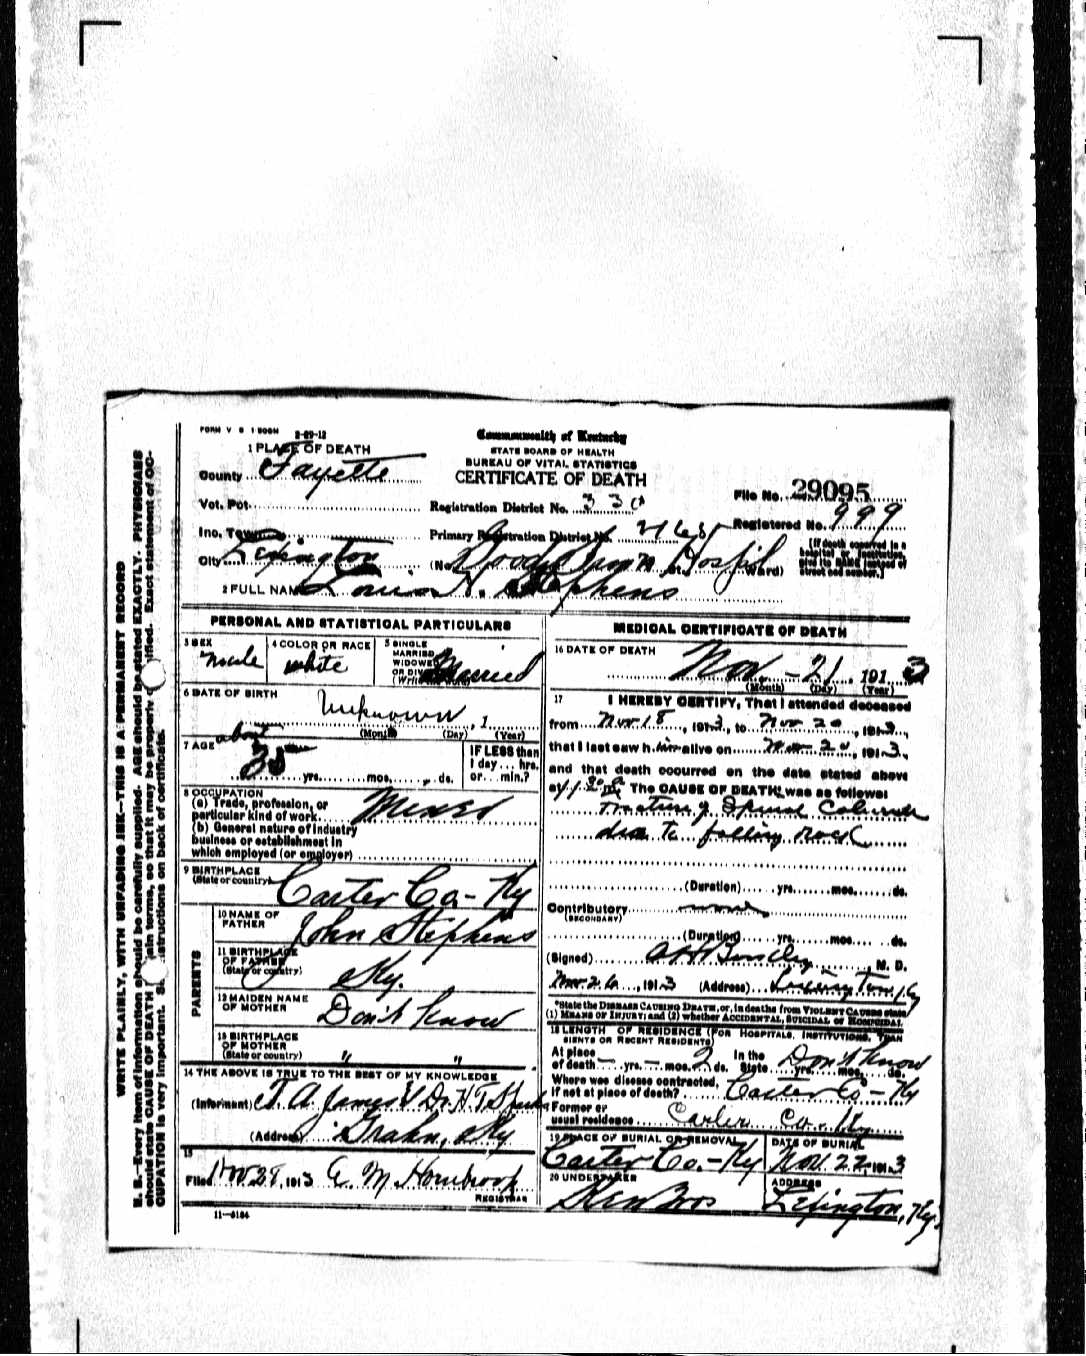 FORM V S 1 500M 2-29-12
Commonwealth of Kentucky
STATE BOARD OF HEALTH
BUREAU OF VITAL STATISTICS
CERTIFICATE OF DEATH
1 PLACE OF DEATH
County Fayette
Vot. Pct.
Registration District No. 330
File No. 29095
Inc. Town
Primary Registration District No. 2168
Registered No. 999
City Lexington
(No. Good Hospil St. Ward)
[If death occurred in a hospital or institution, give its NAME instead of street and number.]
2 FULL NAME Louis H. Stephens
PERSONAL AND STATISTICAL PARTICULARS
3 SEX male
4 COLOR OR RACE white
5 SINGLE MARRIED WIDOWED OR DIVORCED (Write the word) Married
6 DATE OF BIRTH Unknown, 1
(Month) (Day) (Year)
7 AGE about 35 yrs. mos. ds.
IF LESS than 1 day ... hrs. or ... min.?
8 OCCUPATION
(a) Trade, profession, or particular kind of work Miner
(b) General nature of industry business or establishment in which employed (or employer)
9 BIRTHPLACE (State or country) Carter Co- Ky
PARENTS
10 NAME OF FATHER John Stephens
11 BIRTHPLACE OF FATHER (State or country) Ky.
12 MAIDEN NAME OF MOTHER Don't Know
13 BIRTHPLACE OF MOTHER (State or country) " "
14 THE ABOVE IS TRUE TO THE BEST OF MY KNOWLEDGE
(Informant) T. A. James & Dr. H. T.
(Address) Grahn, Ky
15
Filed Nov 28, 1913 A. M.
REGISTRAR
11-6184
MEDICAL CERTIFICATE OF DEATH
16 DATE OF DEATH
Nov. - 21, 1913
(Month) (Day) (Year)
17 I HEREBY CERTIFY, That I attended deceased
from Nov 18, 1913, to Nov 20, 1913,
that I last saw him alive on Nov 20, 1913,
and that death occurred on the date stated above
at 1 30 a M. The CAUSE OF DEATH* was as follows:
Fracture of Spinal Column
due to falling rock
(Duration) yrs. mos. ds.
Contributory none
(SECONDARY)
(Duration) yrs. mos. ds.
(Signed) M. D.
Nov. 26, 1913 (Address) Lexington, Ky
*State the DISEASE CAUSING DEATH, or, in deaths from VIOLENT CAUSES state
(1) MEANS OF INJURY; and (2) whether ACCIDENTAL, SUICIDAL or HOMICIDAL
18 LENGTH OF RESIDENCE (FOR HOSPITALS, INSTITUTIONS, TRANSIENTS OR RECENT RESIDENTS)
At place of death - yrs. - mos. 2 ds. In the State Don't Know yrs. mos. ds.
Where was disease contracted, if not at place of death? Carter Co - Ky
Former or usual residence Carter Co. Ky.
19 PLACE OF BURIAL OR REMOVAL Carter Co.- Ky
DATE OF BURIAL Nov. 22 1913
20 UNDERTAKER Bros
ADDRESS Lexington, Ky.
WRITE PLAINLY, WITH UNFADING INK—THIS IS A PERMANENT RECORD
N. B.—Every item of information should be carefully supplied. AGE should be stated EXACTLY. PHYSICIANS
should state CAUSE OF DEATH in plain terms, so that it may be properly classified. Exact statement of OC-
CUPATION is very important. See instructions on back of certificate.